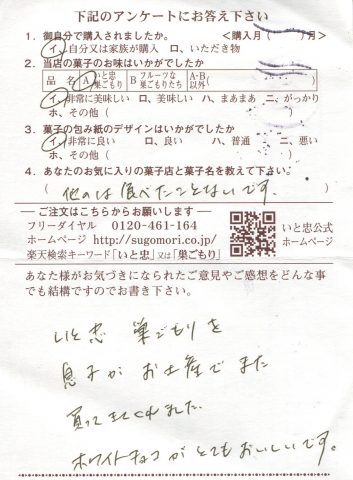 下記のアンケートにお答え下さい
1. 御自分で購入されましたか。 <購入月( )月>
イ、自分又は家族が購入 ロ、いただき物
2. 当店の菓子のお味はいかがでしたか
品名 A いと忠巣ごもり B フルーツな巣ごもりたち A・B以外( )
イ、非常に美味しい ロ、美味しい ハ、まあまあ ニ、がっかり
ホ、その他( )
3. 菓子の包み紙のデザインはいかがでしたか
イ、非常に良い ロ、良い ハ、普通 ニ、悪い
ホ、その他( )
4. あなたのお気に入りの菓子店と菓子名を教えて下さい。
( 他のは食べたことないです。 )
ご注文はこちらからお願いします
フリーダイヤル 0120-461-164
ホームページ http://sugomori.co.jp/
楽天検索キーワード「いと忠」又は「巣ごもり」
いと忠公式
ホームページ
あなた様がお気づきになられたご意見やご感想をどんな事
でも結構ですのでお書き下さい。
いと忠 巣ごもりを
息子がお土産でまた
買ってきてくれました。
ホワイトチョコがとてもおいしいです。